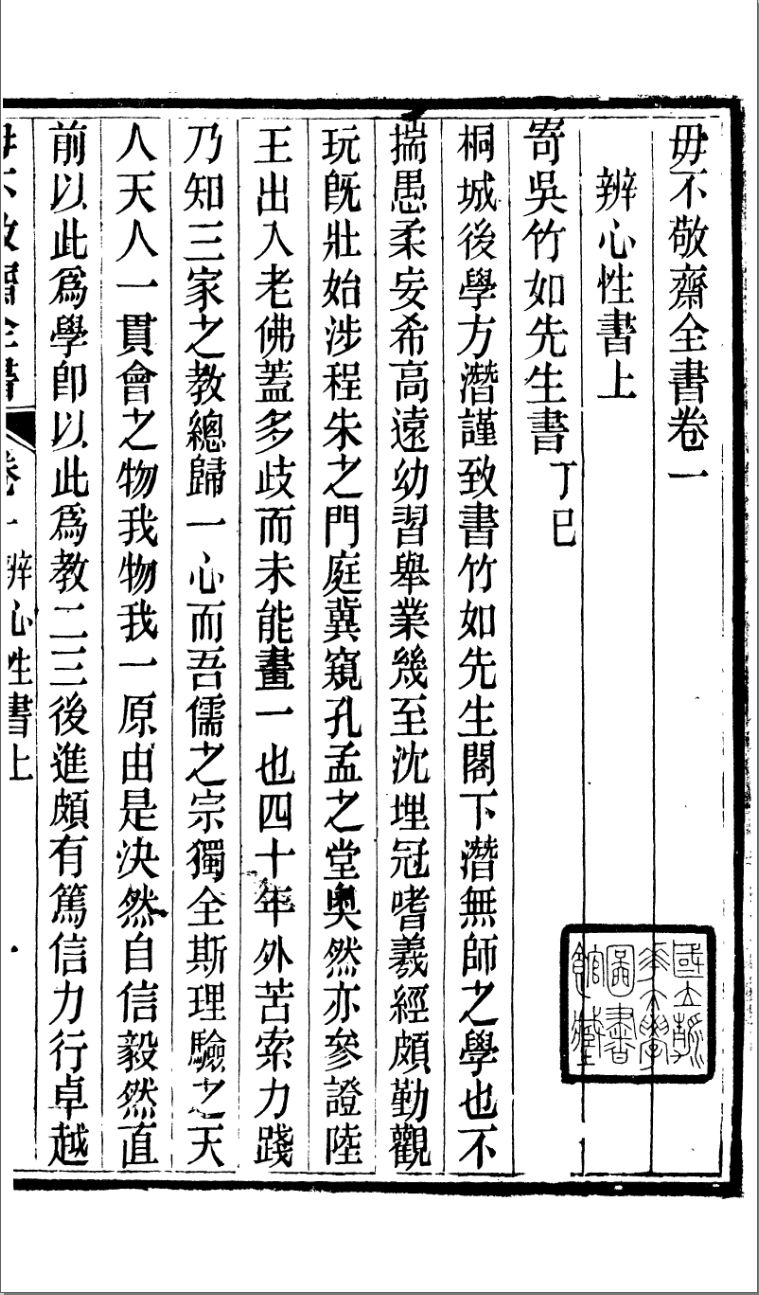 毋不敬齋全書卷一
辨心性書上
寄吳竹如先生書丁巳
桐城後學方潛謹致書竹如先生閣下潛無師之學也不
揣愚柔妄希高遠幼習舉業幾至沈埋冠嗜羲經頗勤觀
玩旣壯始涉程朱之門庭冀窺孔孟之堂奧然亦參證陸
王出入老佛蓋多歧而未能畫一也四十年外苦索力踐
乃知三家之教總歸一心而吾儒之宗獨全斯理驗之天
人天人一貫會之物我物我一原由是決然自信毅然直
前以此爲學卽以此爲教二三後進頗有篤信力行卓越
毋不敬齋全書 卷一 辨心性書上
國立清華大學圖書館藏